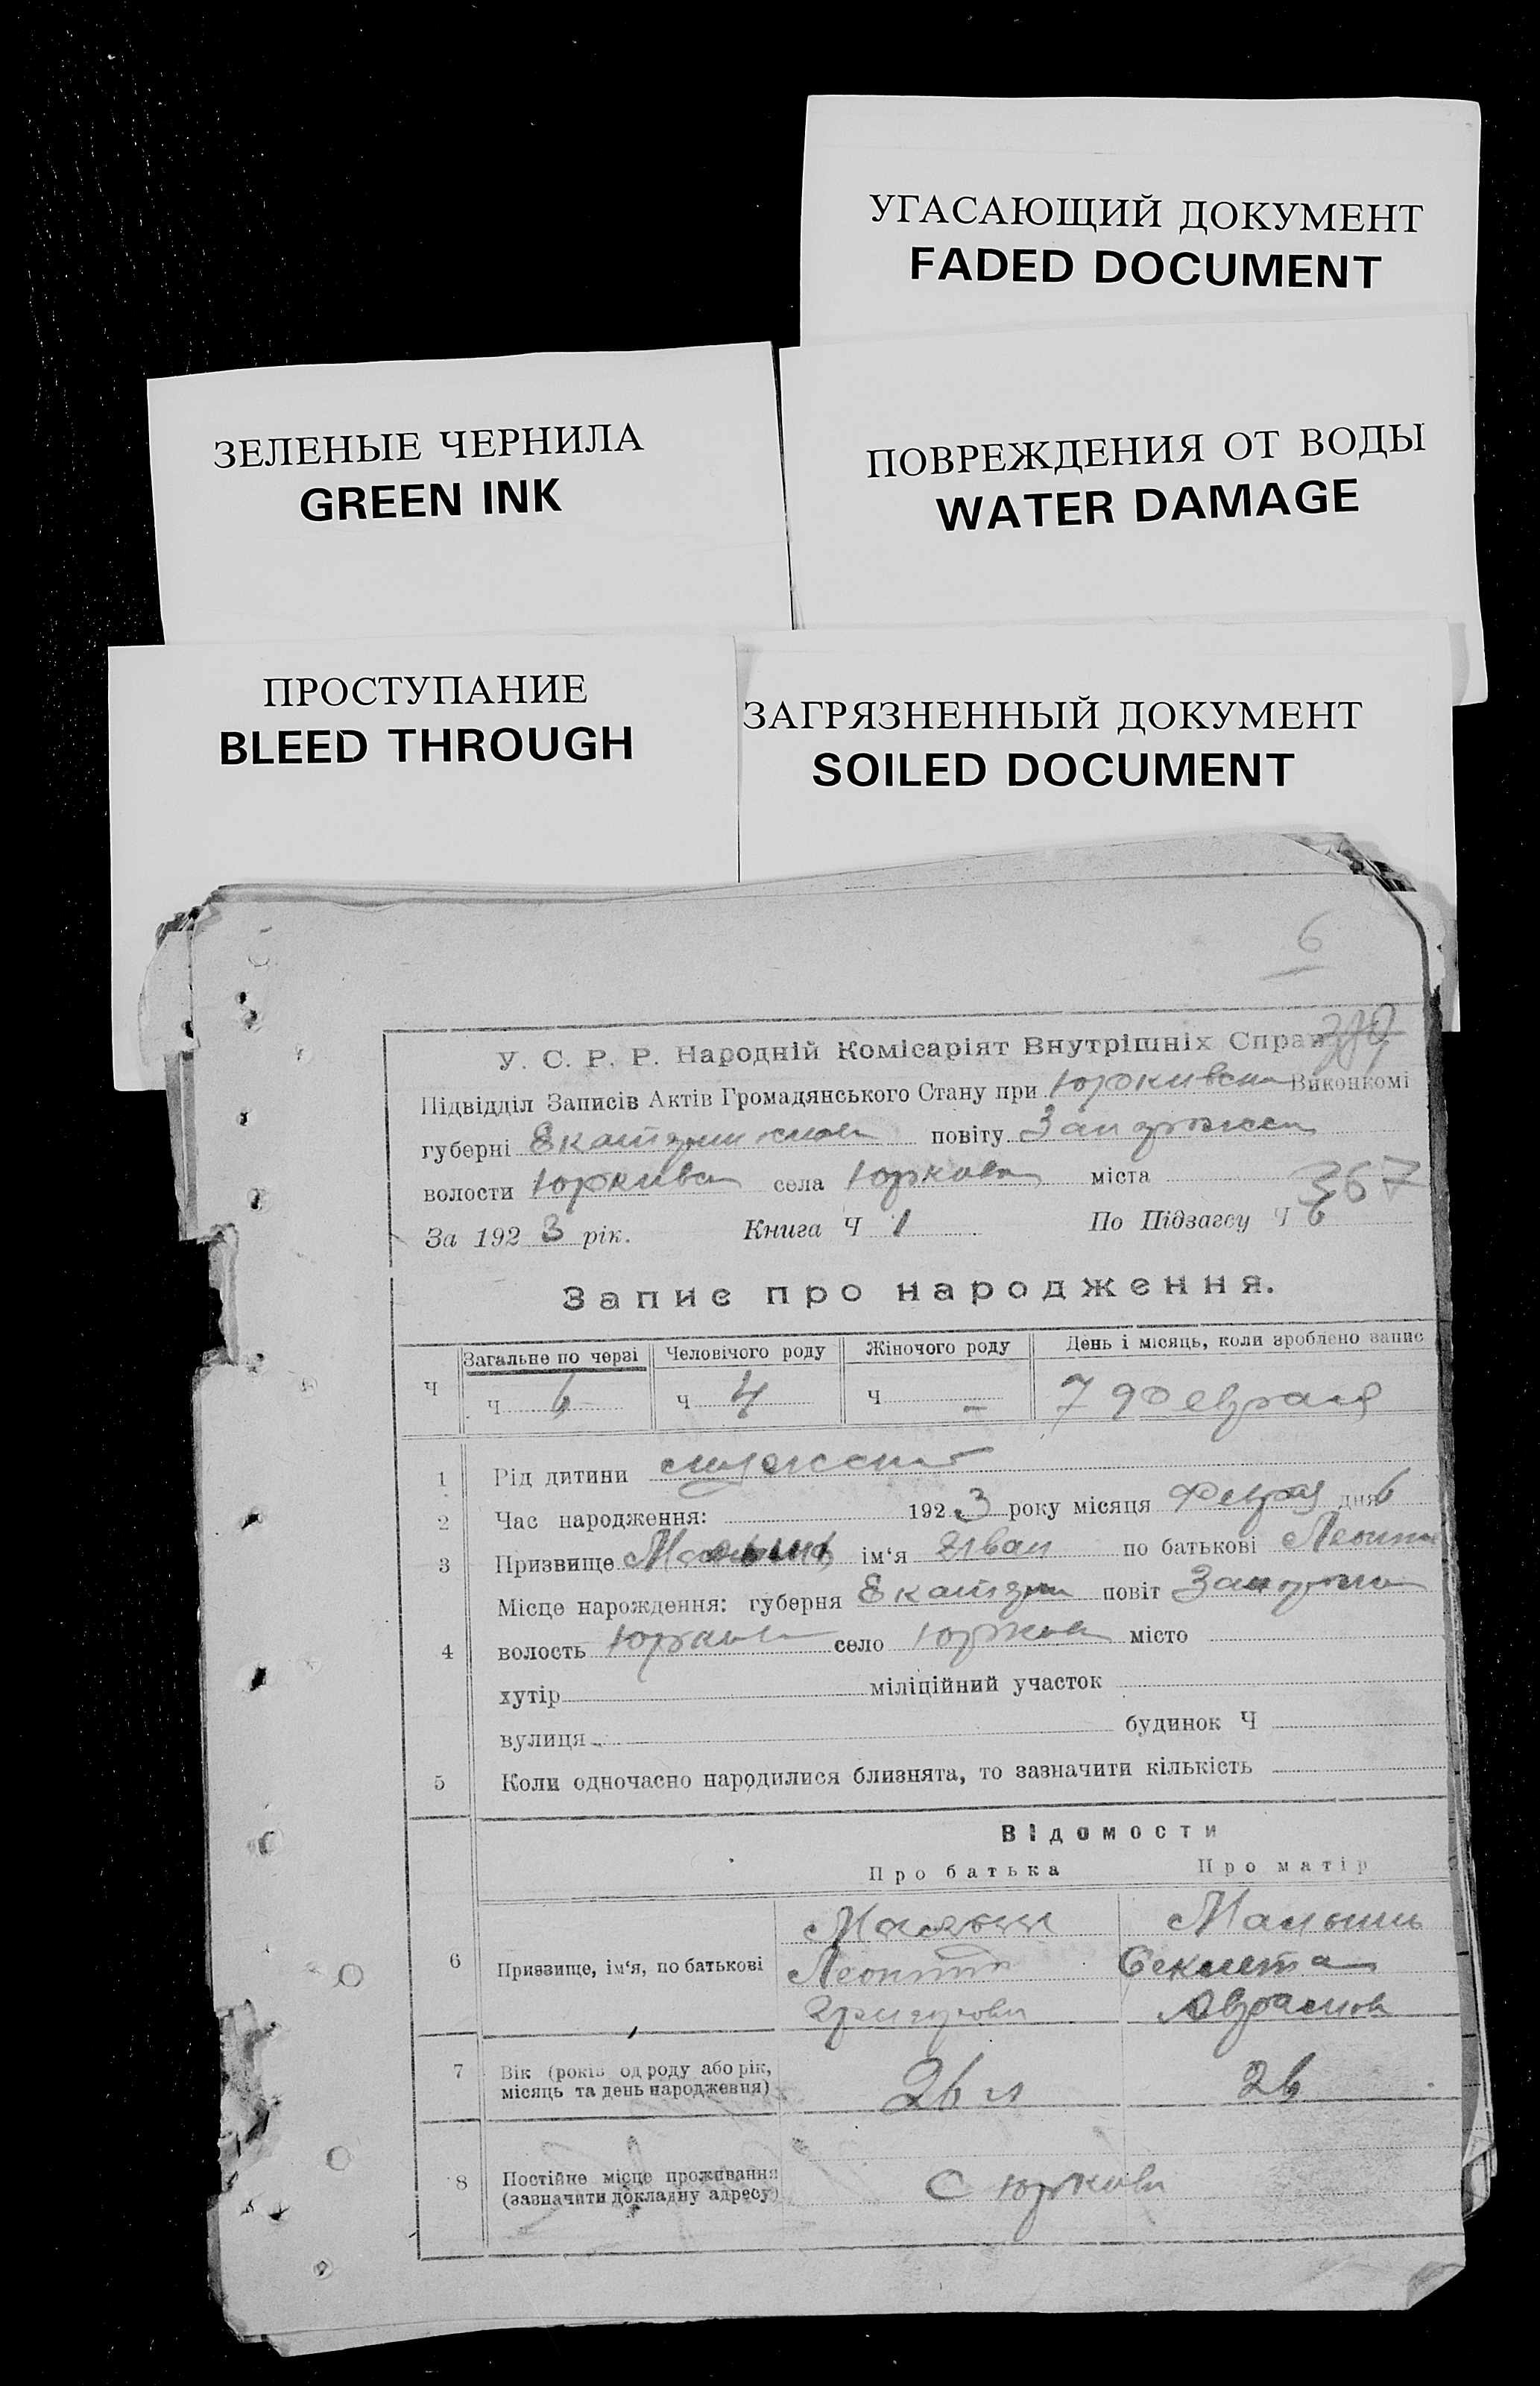 УГАСАЮЩИЙ ДОКУМЕНТ
FADED DOCUMENT
ЗЕЛЕНЫЕ ЧЕРНИЛА
GREEN INK
ПОВРЕЖДЕНИЯ ОТ ВОДЫ
WATER DAMAGE
ПРОСТУПАНИЕ
BLEED THROUGH
ЗАГРЯЗНЕННЫЙ ДОКУМЕНТ
SOILED DOCUMENT
6
У. С. Р. Р. Народній Комісаріят Внутрішніх Справ
Підвідділ Записів Актів Громадянського Стану при Юркивски Виконкомі
губерні повіту
волости Юркивск села Юркова міста 367
За 192 3 рік. Книга Ч 1 По Підзагсу Ч 6
Запис про народження.
Загальне по черзі Человічого роду Жіночого роду День і місяць, коли зроблено запис
Ч Ч 6 Ч 4 Ч - 7 Февраля
1 Рід дитини
2 Час народження: 192 3 року місяця Феврал дня 6
3 Призвище ім‘я Иван по батькові
Місце народження: губерня повіт
4 волость село місто
хутір міліційний участок
вулиця будинок Ч
5 Коли одночасно народилися близнята, то зазначити кількість
Відомости
Про батька Про матір
6 Призвище, ім‘я, по батькові Малыш Малыш
Леонтий Секлета
Аврамов
7 Вік (років од роду або рік, місяць та день народження) 26 л 26
8 Постійне місце проживання (зазначити докладну адресу) С Юркови